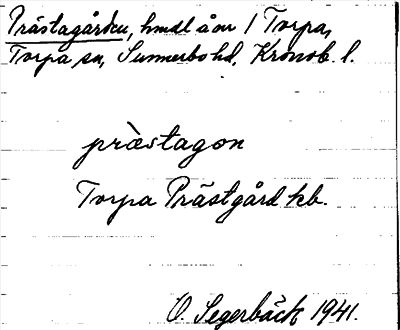 Prästagården, hmdl å nr 1 Torpa,
Torpa sn, Sunnerbo hd, Kronob. l.
pràestagon
Torpa Prästgård kb.
O. Segerbäck 1941.